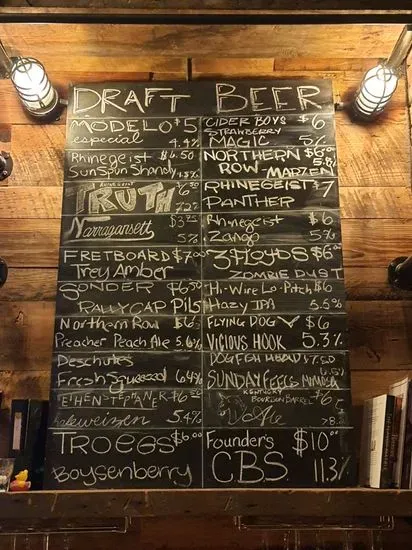 DRAFT BEER
MODELO $5
especial 4.4%
Rhinegeist $6.50
SunSpun Shandy
RHINEGEIST
TRUTH
Narragansett $3.75
5%
FRETBOARD $7.00
Trey Amber
SONDER $6.50
RALLYCAP PilS
Northern Row $6.
Preacher Peach Ale 5.6%
Deschutes
Fresh Squeezed 6.4%
5.4%
TROEGS $6.00
Boysenberry
CIDER BOYS $6
STRAWBERRY
MAGIC 5%
NORTHERN $6.00
ROW 5.8%
MARZEN
RHINEGEIST $7
PANTHER
Rhinegeist $6
Zango 5%
3 FLOYDS $6.00
ZOMBIE DUST
Hi-Wire Lo-Pitch $6
Hazy IPA 5.5%
FLYING DOG $6
VICIOUS HOOK 5.3%
DOGFISH $7.50
SUNDAY FEELS MIMOSA
KENTUCKY
BOURBON BARREL $6
Ale
Founder's $10.00
C.B.S. 11.3%